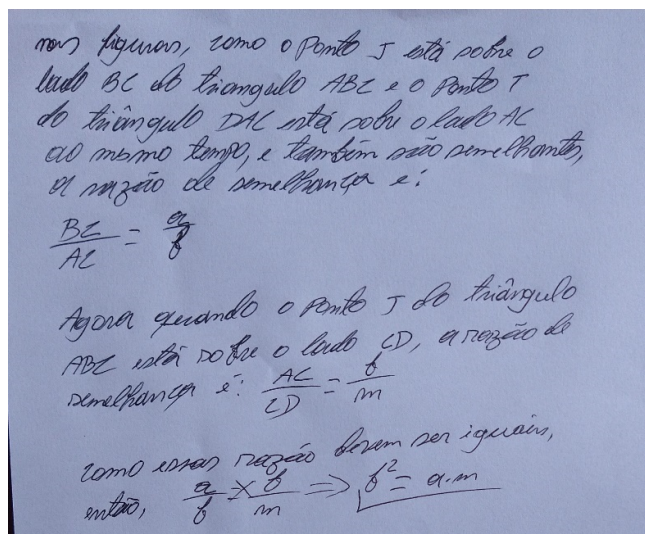 nas figuras, como o ponto J está sobre o
lado BC do triangulo ABC e o ponto T
do triângulo DAC está sobre o lado AC
ao mesmo tempo, e também são semelhantes,
a razão de semelhança é:
BC/AC = a/b
Agora quando o ponto J do triângulo
ABC está sobre o lado CD, a razão de
semelhança é: AC/CD = b/m
como essas razão devem ser iguais,
então, a/b × b/m ⇒ b² = a.m